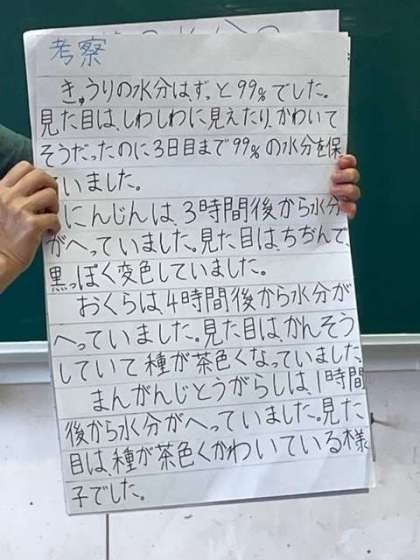 考察
きゅうりの水分は、ずっと99%でした。
見た目は、しわしわに見えたり、かわいて
そうだったのに3日目まで99%の水分を保
いました。
にんじんは、3時間後から水分
がへっていました。見た目は、ちぢんで、
黒っぽく変色していました。
おくらは、4時間後から水分が
へっていました。見た目は、かんそう
していて種が茶色くなっていました。
まんがんじとうがらしは、1時間
後から水分がへっていました。見た
目は、種が茶色くかわいている様
子でした。